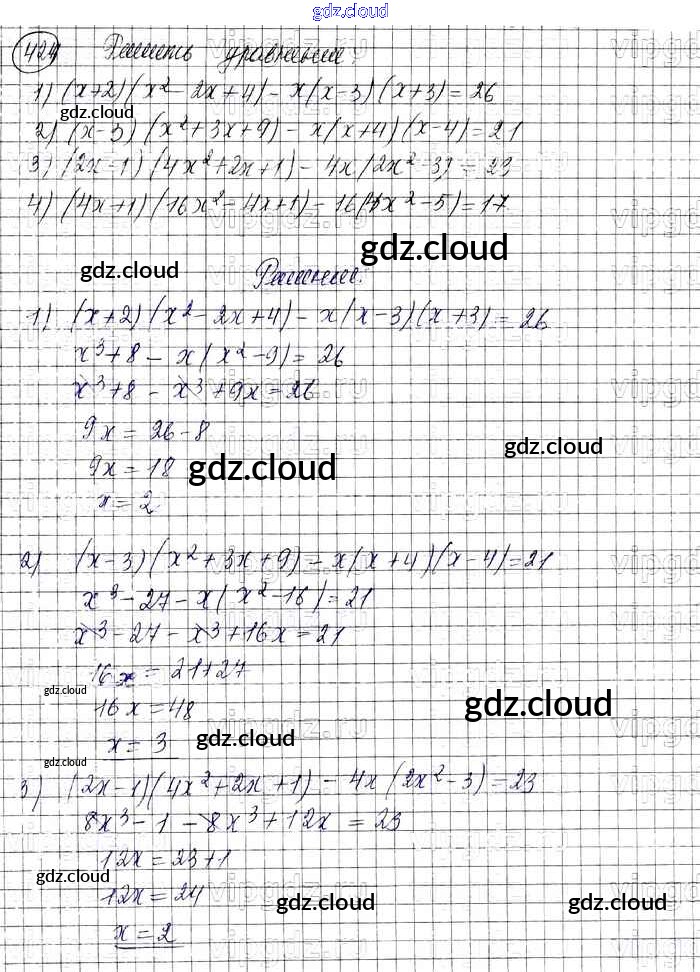 gdz.cloud
424 Решить уравнения:
1) (x+2)(x² - 2x+4) - x(x-3)(x+3) = 26
gdz.cloud
2) (x-3)(x²+3x+9) - x(x+4)(x-4)=21
3) (2x-1)(4x²+2x+1) - 4x(2x²-3) = 23
4) (4x+1)(16x²-4x+1) - 16x(4x²-5)=17
gdz.cloud
gdz.cloud
Решение:
1) (x+2)(x²-2x+4) - x(x-3)(x+3) = 26
x³+8 - x(x²-9) = 26
x³+8 - x³+9x=26
9x = 26-8
gdz.cloud
9x = 18
gdz.cloud
x = 2
2) (x-3)(x²+3x+9) - x(x+4)(x-4)=21
x³-27-x(x²-16)=21
x³-27-x³+16x=21
16x = 21+27
gdz.cloud
16x=48
gdz.cloud
x = 3
gdz.cloud
gdz.cloud
3) (2x-1)(4x²+2x+1) - 4x(2x²-3)=23
8x³-1-8x³+12x = 23
12x = 23+1
gdz.cloud
12x = 24
gdz.cloud
gdz.cloud
x = 2